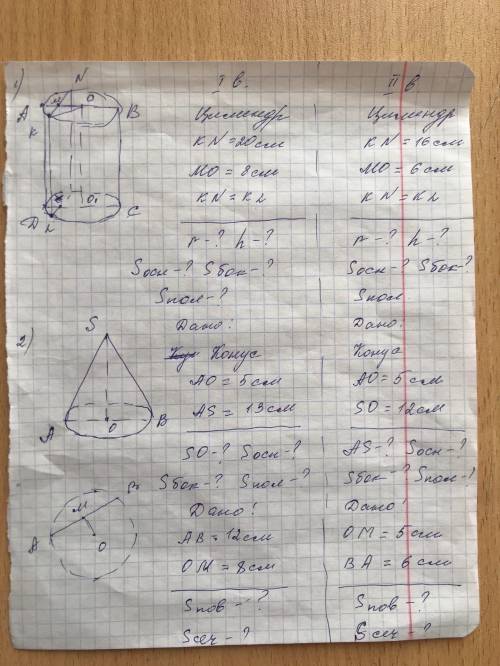 1)
I в.
II в
N
A
M
O
B
K
O₁
D
L
C
Цилиндр
KN = 20 см
MO = 8 см
KN = KL
r - ? h - ?
Sосн - ? Sбок - ?
Sпол - ?
Дано:
Конус
AO = 5 см
AS = 13 см
SO - ? Sосн - ?
Sбок - ? Sпол - ?
Дано!
AB = 12 см
OM = 8 см
Sпов - ?
Sсеч - ?
Цилиндр
KN = 16 см
MO = 6 см
KN = KL
r - ? h - ?
Sосн - ? Sбок - ?
Sпол
Дано:
Конус
AO = 5 см
SO = 12 см
AS - ? Sосн - ?
Sбок - ? Sпол - !
Дано!
OM = 5 см
BA = 6 см
Sпов - ?
Sсеч - ?
2)
S
A
O
B
M
B
A
O